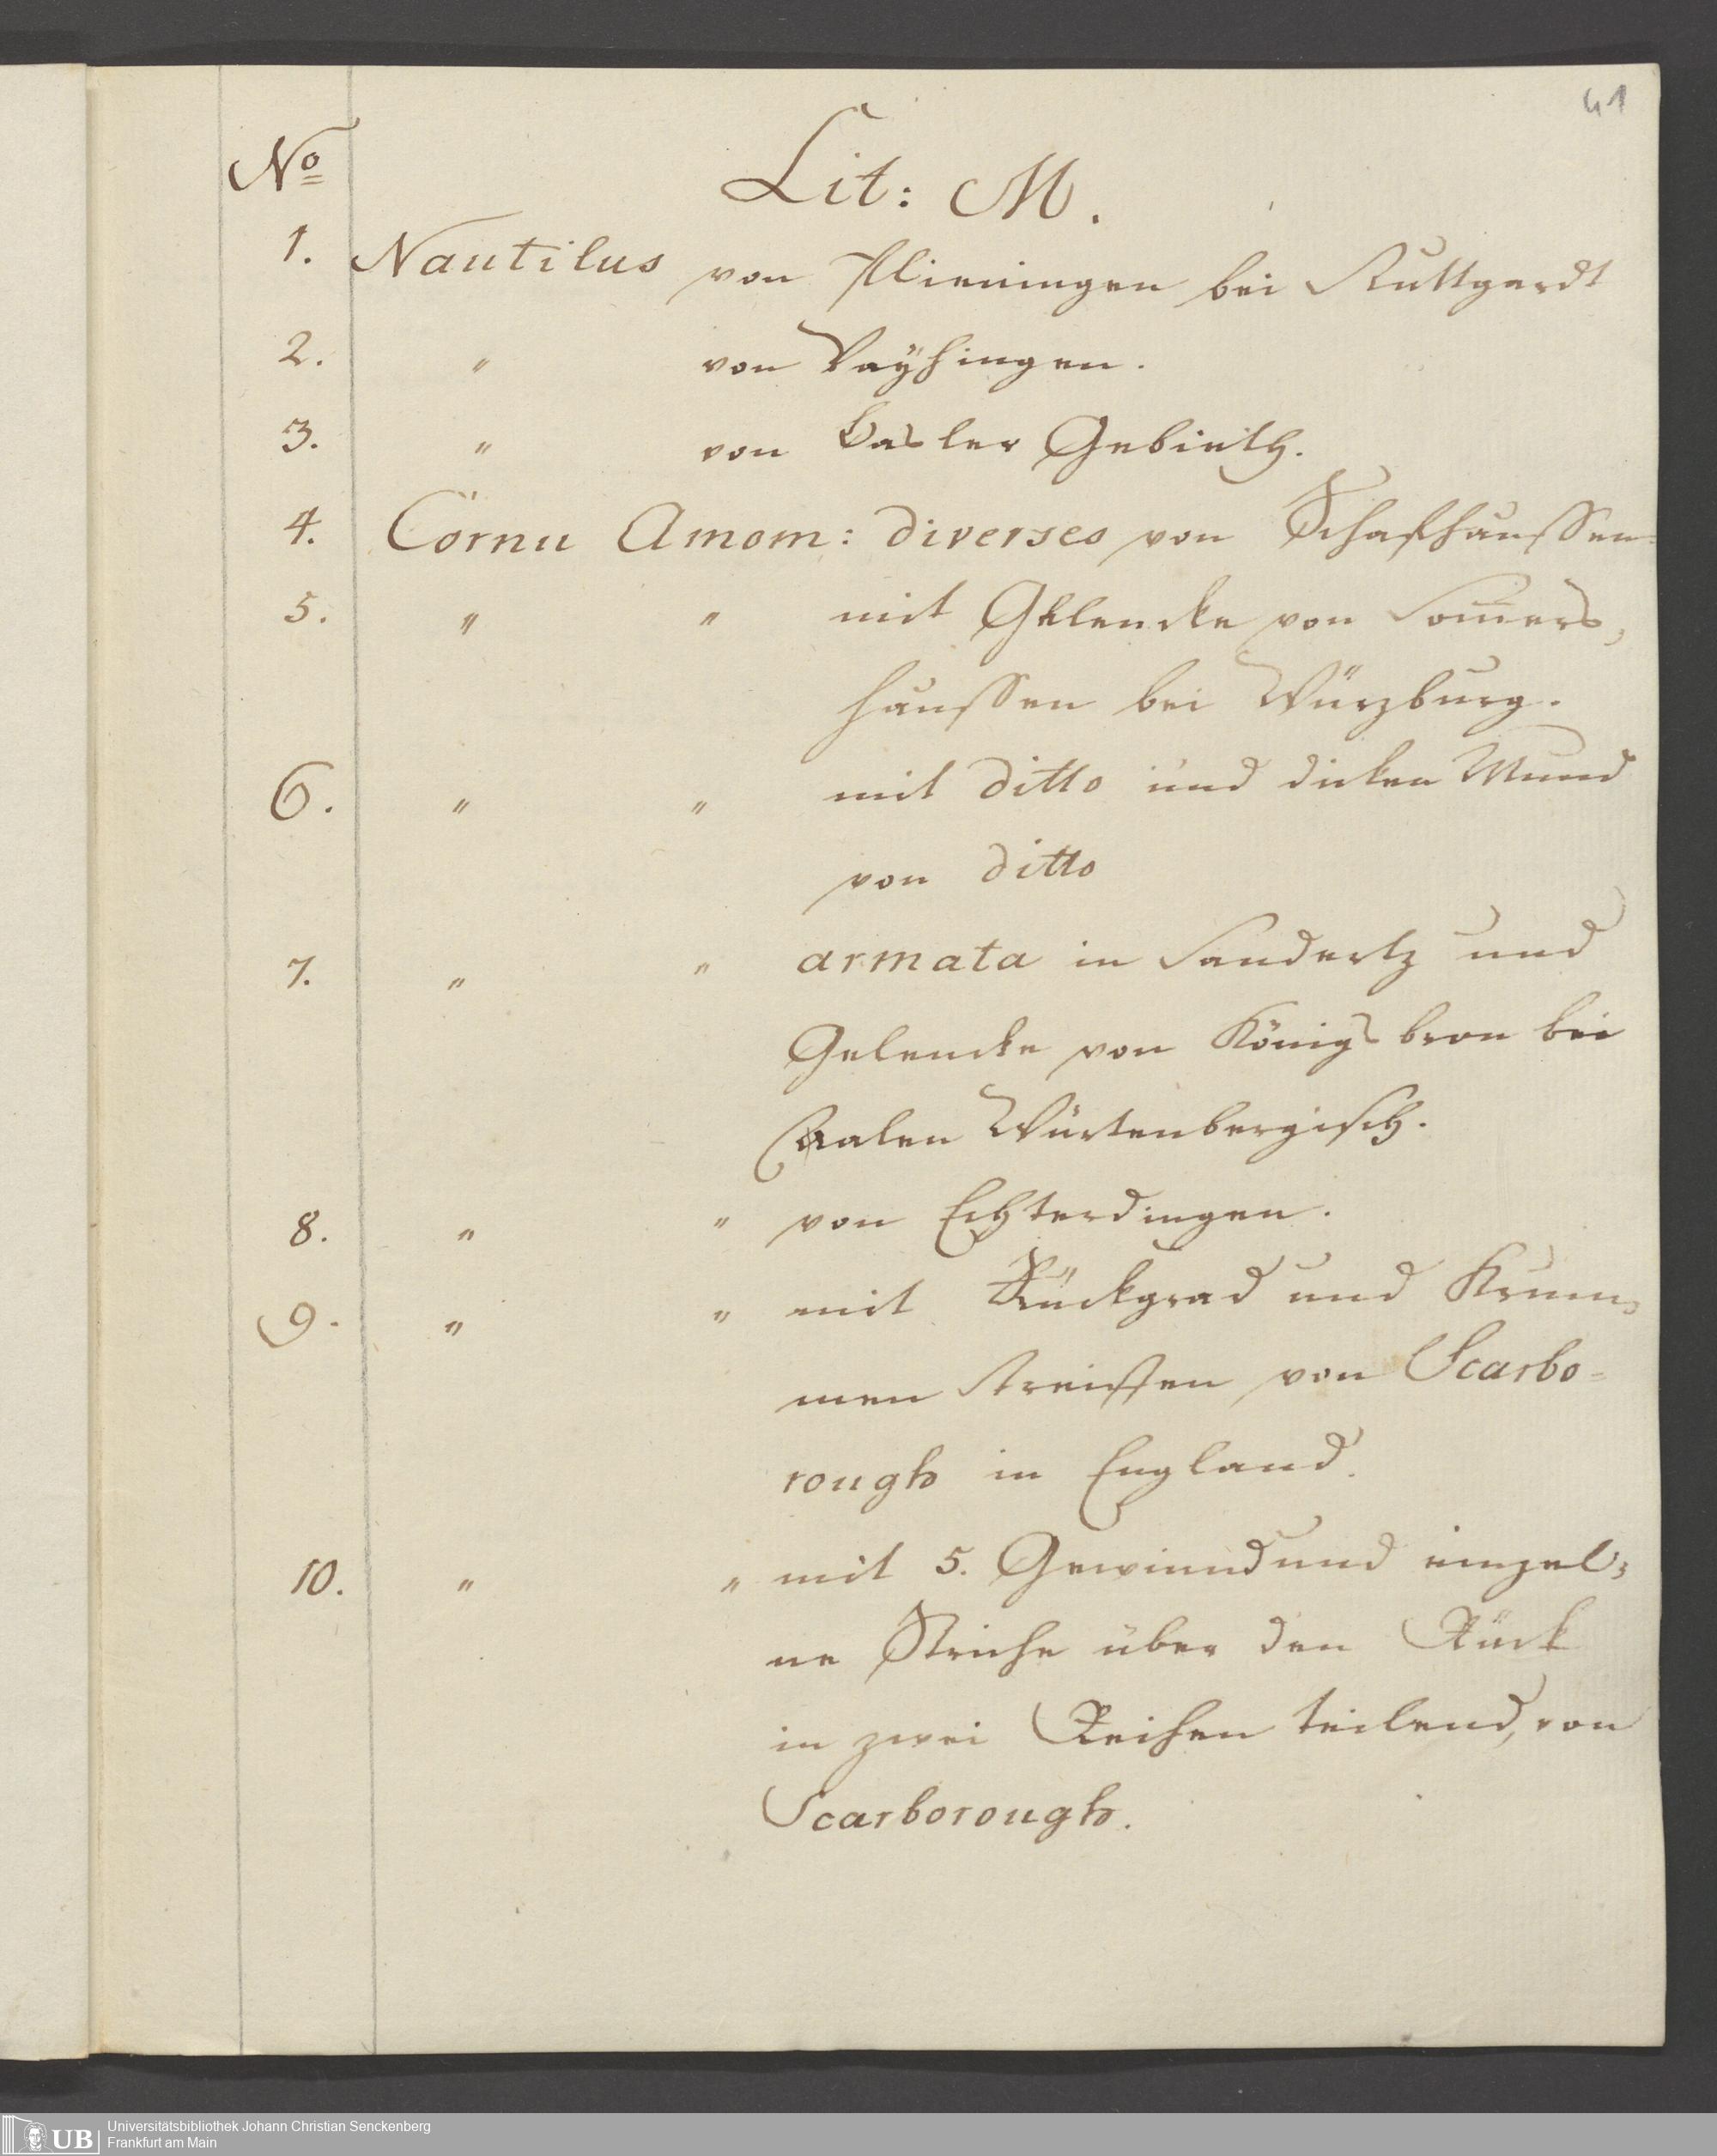 41
No
Lit: M.
1. Nautilus von Plieningen bei Stuttgardt
2. " von Vaÿhingen.
3. " von Basler Gebieth.
4. Cornu Amom: diverses von Schafhaussen
5. " " mit Gelencke von Somers,
haussen bei Würzburg.
6. " " mit ditto und dicken Mund
von ditto
7. " " armata in Sandertz und
Gelencke von Königsbron bei
Aalen Würtenbergisch.
8. " " von Echterdingen.
9. " " mit Rückgrad und Krum,
men Streiffen von Scarbo=
rough in England.
10. " " mit 5. Gewind und einzel,
ne Striche über den Rück
in zwei Reihen teilend, von
Scarborough.
UB Universitätsbibliothek Johann Christian Senckenberg
Frankfurt am Main